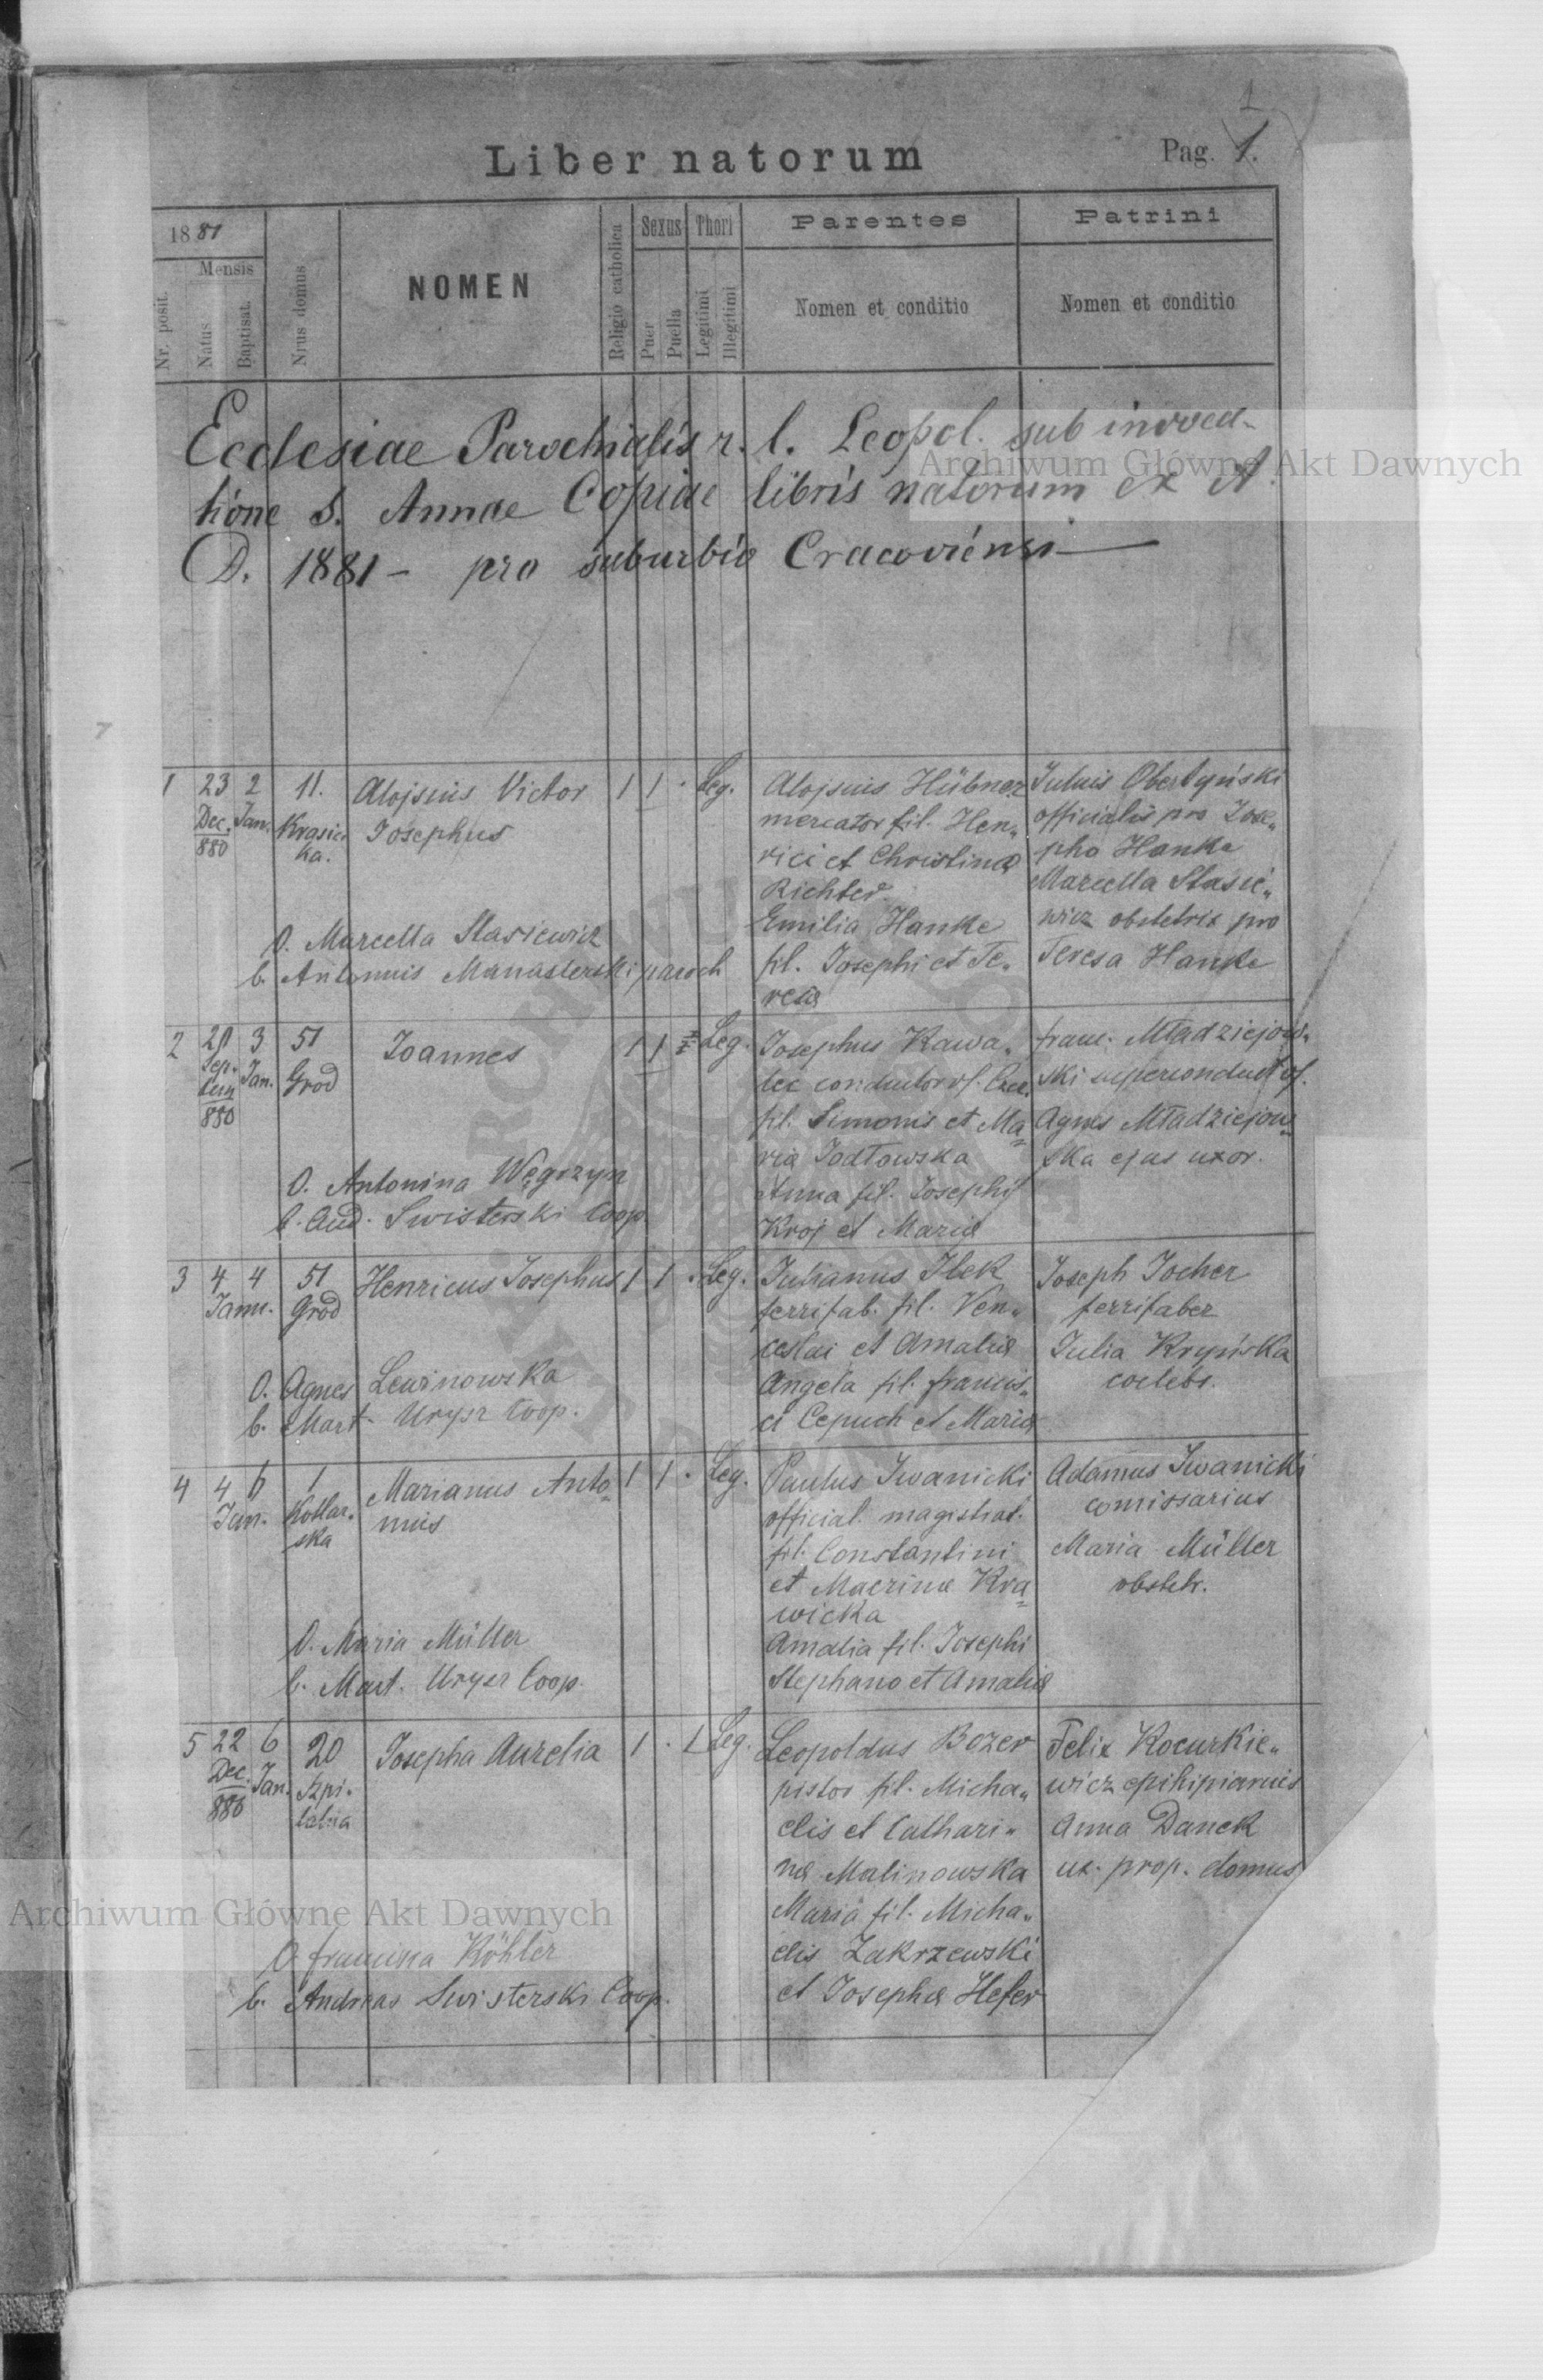 1
Liber natorum
Pag. 1.
1881
Mensis
Nr. posit.
Natus
Baptisat.
Nrus domus
NOMEN
Religio catholica
Sexus
Puer
Puella
Thori
Legitimi
Illegitimi
Parentes
Nomen et conditio
Patrini
Nomen et conditio
Ecclesiae Parochialis r. l. Leopol. sub invoca-
tione S. Annae Copiae libris natorum ex A.
D. 1881 - pro suburbio Cracoviensi
Archiwum Główne Akt Dawnych
1 23 2 11. Alojsius Victor 1 1 . Leg.
Dec. Jan. Krasic- Josephus
880 ka.
O. Marcella Stasiewicz
b. Antonius Manasterski paroch
Alojsius Hübner
mercator fil. Hen„
rici et Christina
Richter.
Emilia Hanke
fil. Josephi et Te„
resia
Julius Obertyński
officialis pro Jose„
pho Hanke
Marcella Stasie„
wicz obstetrix pro
Teresa Hanke
2 3 51 Joannes 1 1 Leg.
Sep. Jan. Grod
880
O. Antonina Węgrzyn
b. And. Swisterski Coop.
Josephus Kawa„
lec conductor
fil. Simonis et Ma=
ria Jodłowska
Anna fil. Josephi
Kroj et Maria
franc. Mładziejow„
ski
Agnes Mładziejow=
ska ejus uxor.
3 4 4 51 Henricus Josephus 1 1 . Leg.
Janu. Grod
O. Agnes Lewinowska
b. Mart. Urysz Coop.
Julianus Ilek
ferrifab. fil. Ven„
ceslai et Amalia
Angela fil. francis„
ci Cepuch et Maria
Joseph Jocher
ferrifaber
Julia Krypińska
coelebs.
4 4 6 1 Marianus Anto= 1 1 . Leg.
Jan. Kotlar- nius
ska
O. Maria Müller
b. Mart. Urysz Coop.
Paulus Iwanicki
official. magistrat.
fil. Constantini
et Macrina Kra=
wicka
Amalia fil. Josephi
Stephano et Amalia
Adamus Iwanicki
comissarius
Maria Müller
obstetr.
5 22 6 20 Josepha Aurelia 1 . 1 Leg.
Dec. Jan. Szpi-
880 talna
O. francisca Köhler
b. Andreas Swisterski Coop.
Leopoldus Bozer
pistor fil. Micha„
elis et Cathari„
na Malinowska
Maria fil. Micha„
elis Zakrzewski
et Josepha Hefer
Felix Kocurkie„
wicz
Anna Danek
ux. prop. domus
Archiwum Główne Akt Dawnych